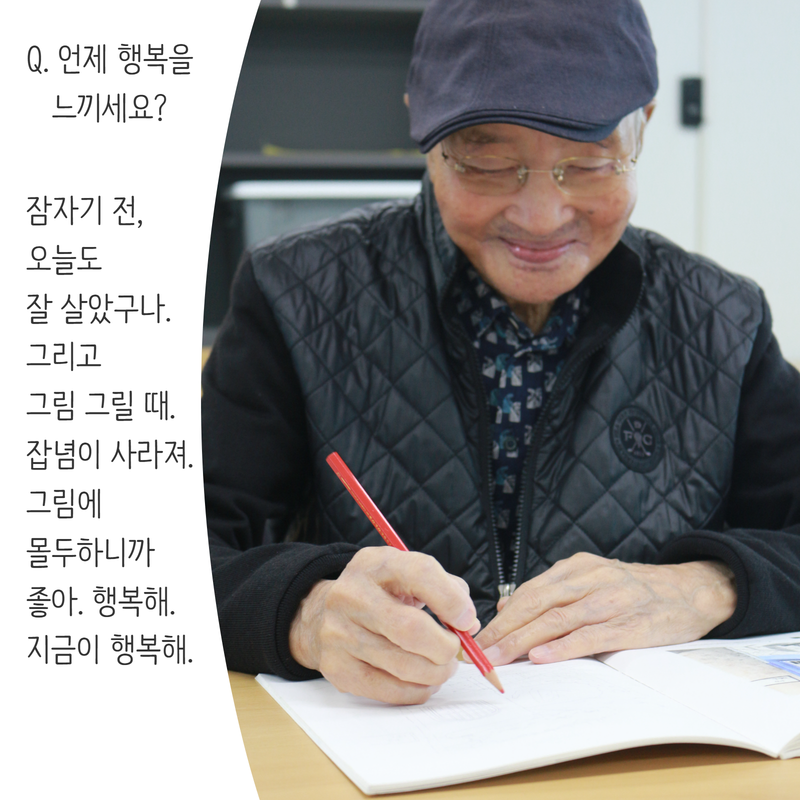 Q. 언제 행복을
느끼세요?
잠자기 전,
오늘도
잘 살았구나.
그리고
그림 그릴 때.
잡념이 사라져.
그림에
몰두하니까
좋아. 행복해.
지금이 행복해.